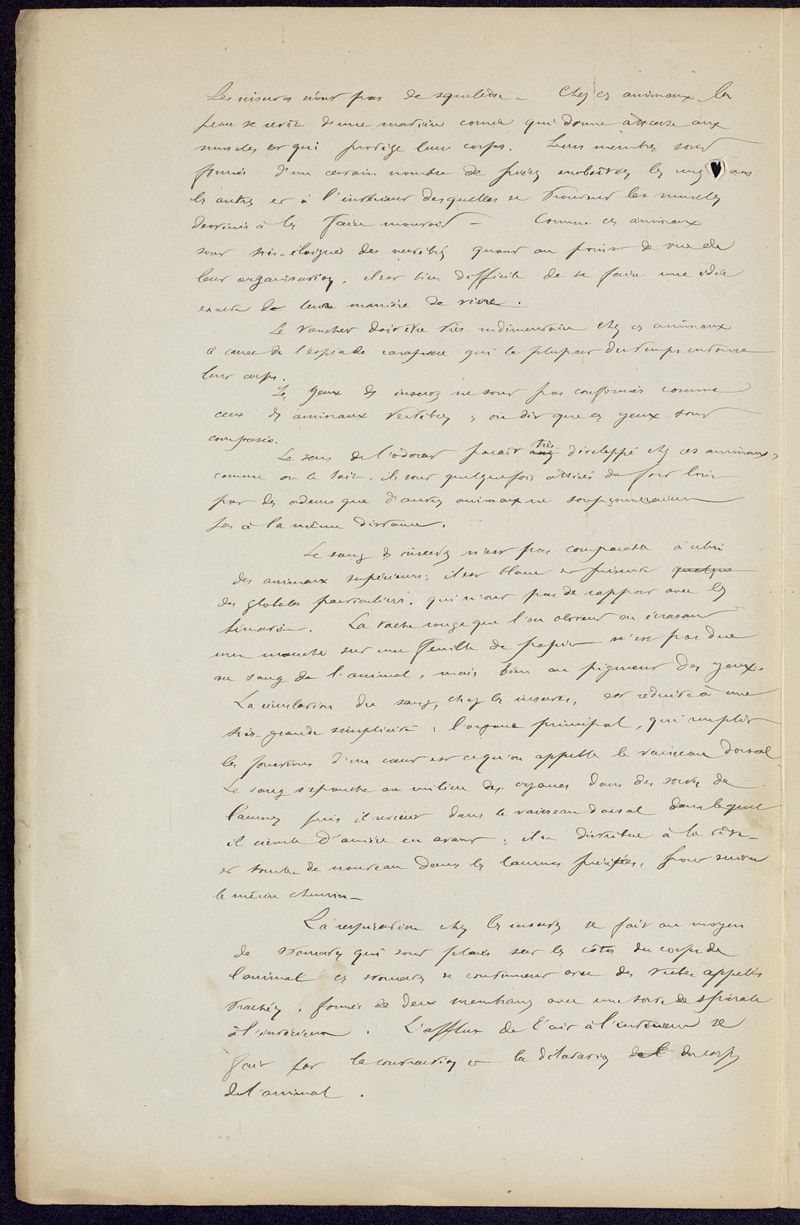 Les insectes n'ont pas de squelette – Chez ces animaux la
peau se revêt d'une matière cornée qui donne attache aux
muscles et qui protège leur corps. Leurs membres sont
formés d'un certain nombre de pièces emboîtées les unes dans
les autres et à l'intérieur desquelles se trouvent les muscles
destinés à les faire mouvoir – Comme ces animaux
sont très-éloignés des vertébrés quant au point de vue de
leur organisation, il est bien difficile de se faire une idée
exacte de leur manière de vivre.
Le toucher doit être très rudimentaire chez ces animaux
à cause de l'espèce de carapace qui la plupart du temps entoure
leur corps.
Les yeux des insectes ne sont pas conformés comme
ceux des animaux vertébrés ; on dit que ces yeux sont
composés.
Le sens de l'odorat paraît très développé chez ces animaux,
comme on le sait, ils sont quelquefois attirés de fort loin
par des odeurs que d'autres animaux ne soupçonneraient
pas à la même distance.
Le sang des insectes n'est pas comparable à celui
des animaux supérieurs ; il est blanc et présente quelques
des globules particuliers, qui n'ont pas de rapport avec les
. La tache rouge que l'on obtient en écrasant
une mouche sur une feuille de papier n'est pas due
au sang de l'animal, mais bien au pigment des yeux.
La circulation du sang, chez les insectes, est réduite à une
très-grande simplicité : l'organe principal, qui remplit
les fonctions d'un cœur est ce qu'on appelle le vaisseau dorsal
Le sang s'épanche au milieu des organes dans des sortes de
lacunes puis il revient dans le vaisseau dorsal dans lequel
il circule d'arrière en avant ; il se distribue à la tête
et tombe de nouveau dans les lacunes précitées, pour suivre
le même chemin –
La respiration chez les insectes se fait au moyen
de stomates qui sont placés sur les côtés du corps de
l'animal ces stomates se continuent avec des tubes appelés
trachées, formés de deux membranes avec une sorte de spirale
à l'intérieur. L'afflux de l'air à l'intérieur se
fait par la contraction et la dilatation du corps
de l'animal.